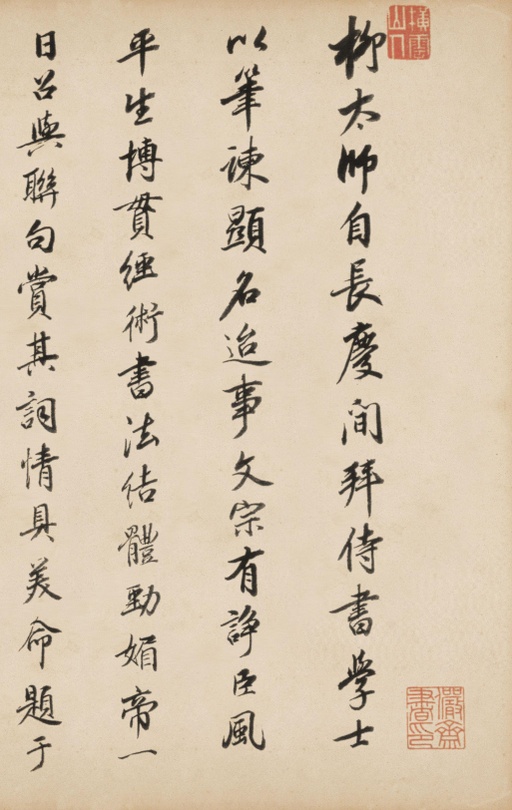 柳太師自長慶間拜侍書學士
以筆諫顯名迨事文宗有諍臣風
平生博貫經術書法結體勁媚帝一
日召與聯句賞其詞情具美命題于
儼齋